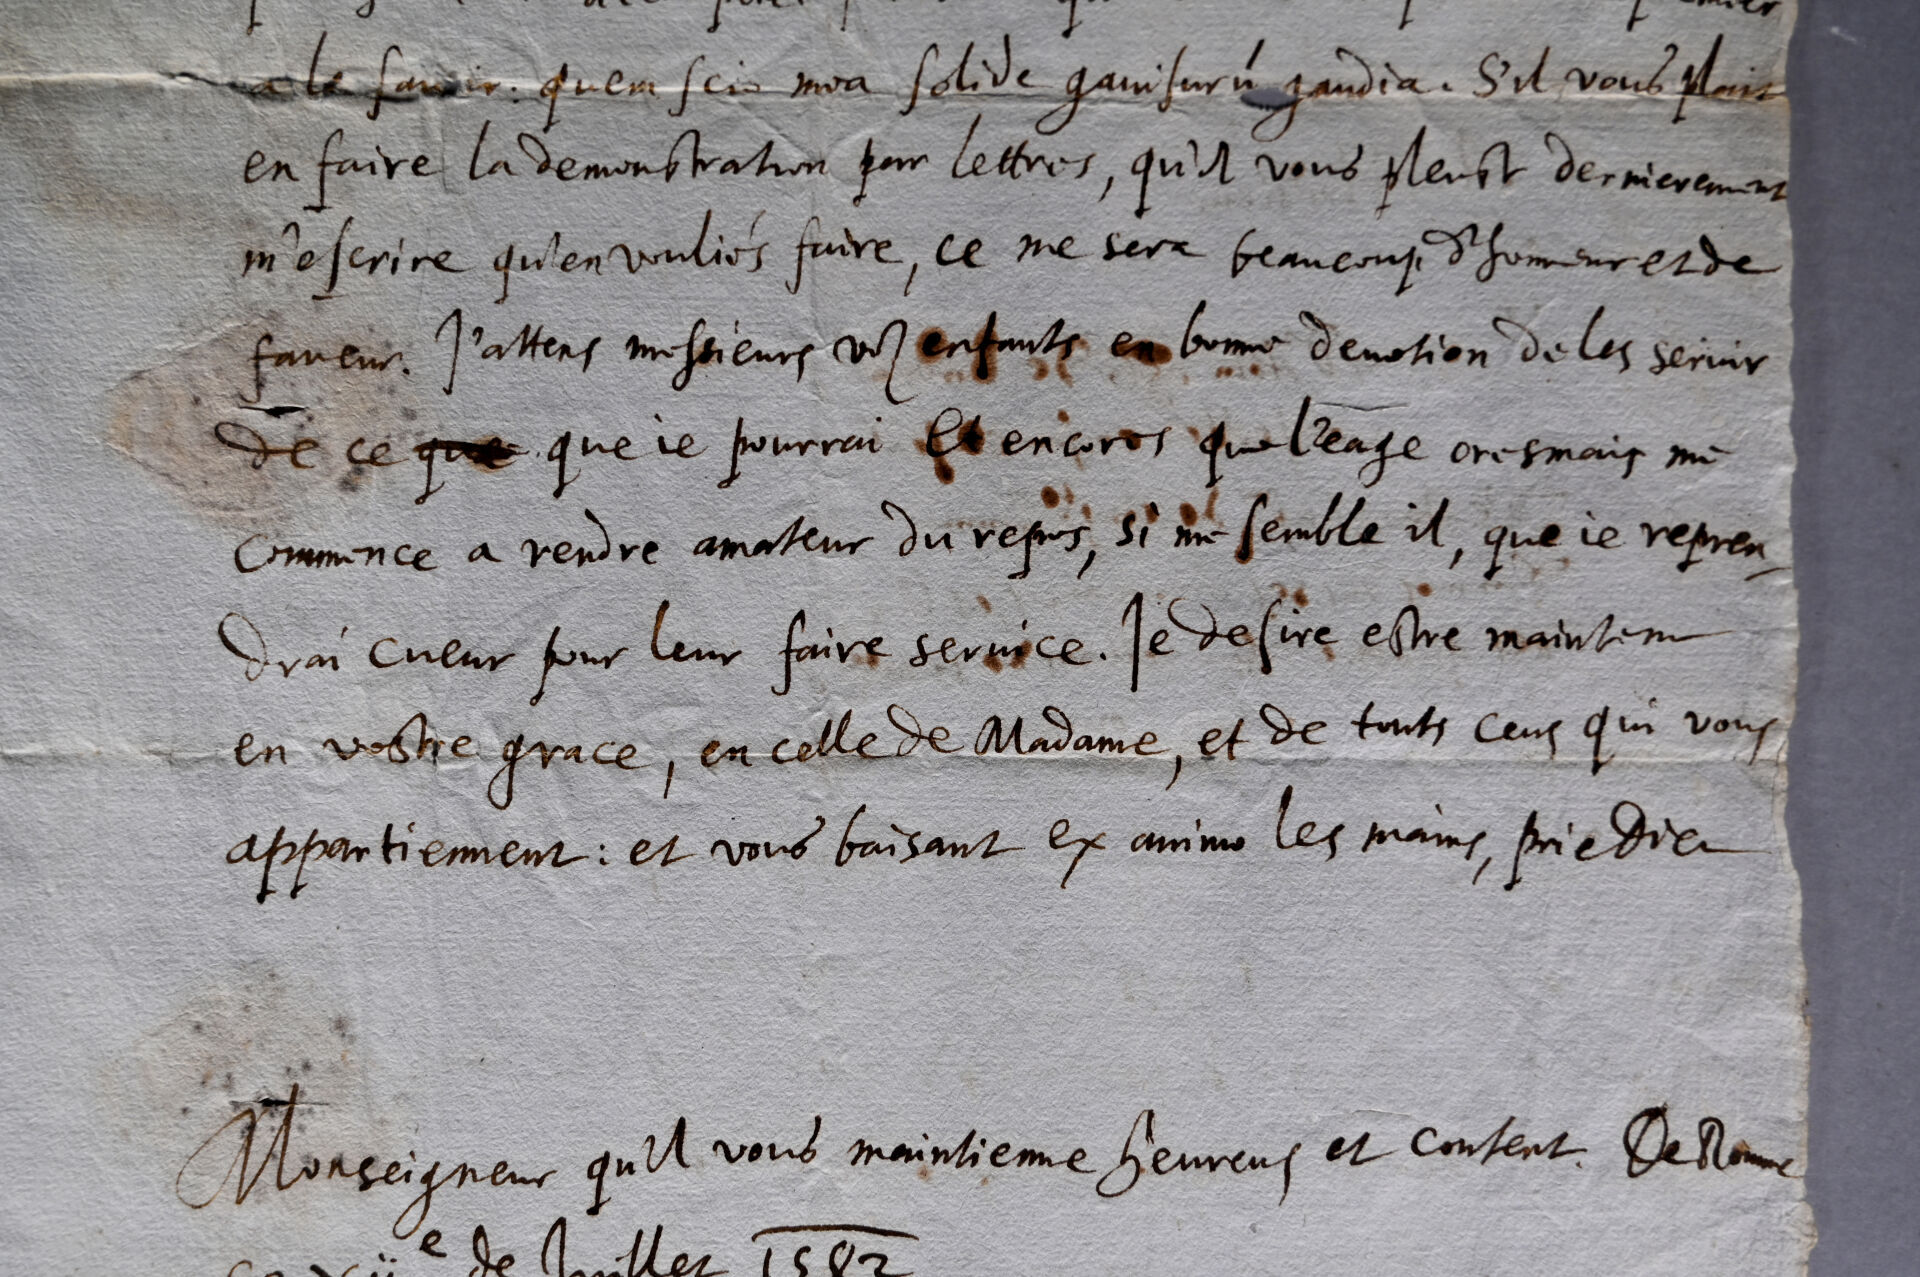 a le savoir. quem scio mea solide gavisurũ gaudia. S'il vous plait
en faire la demonstration par lettres, qu'il vous pleust dernierement
m'escrire qu'en vouliés faire, ce me sera beaucoup d'honneur et de
faveur. J'attens messieurs voz enfants en bonne devotion de les servir
de ce que que ie pourrai Et encores que l'eage oresmais me
commence a rendre amateur du repos, si me semble il, que ie repren-
drai cueur pour leur faire service. Je desire estre maintenu
en vostre grace, en celle de Madame, et de touts ceus qui vous
appartiennent : et vous baisant ex animo les mains, prie Dieu
Monseigneur qu'il vous maintienne heureus et content. De Romme
de Juillet 1582